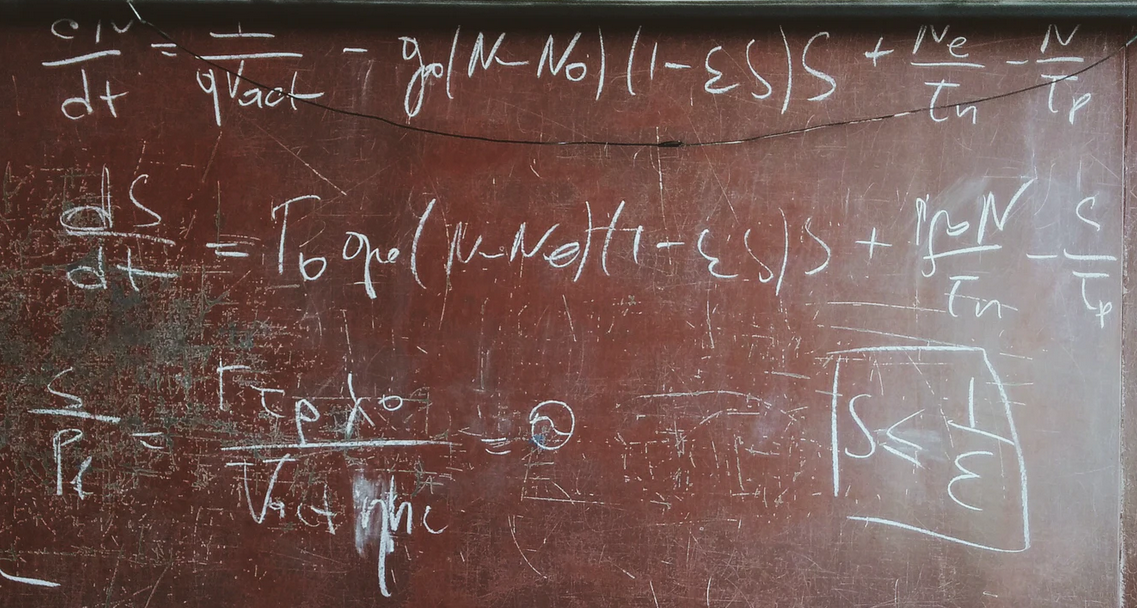 dN/dt = I/qVact - g0(N-N0)(1-εS)S + Ne/τn - N/τp
dS/dt = Γb g0(N-N0)(1-εS)S + ΓβN/τn - S/τp
S/Pf = Γτpλ0/Vactηhc = ∂
S ≤ 1/ε